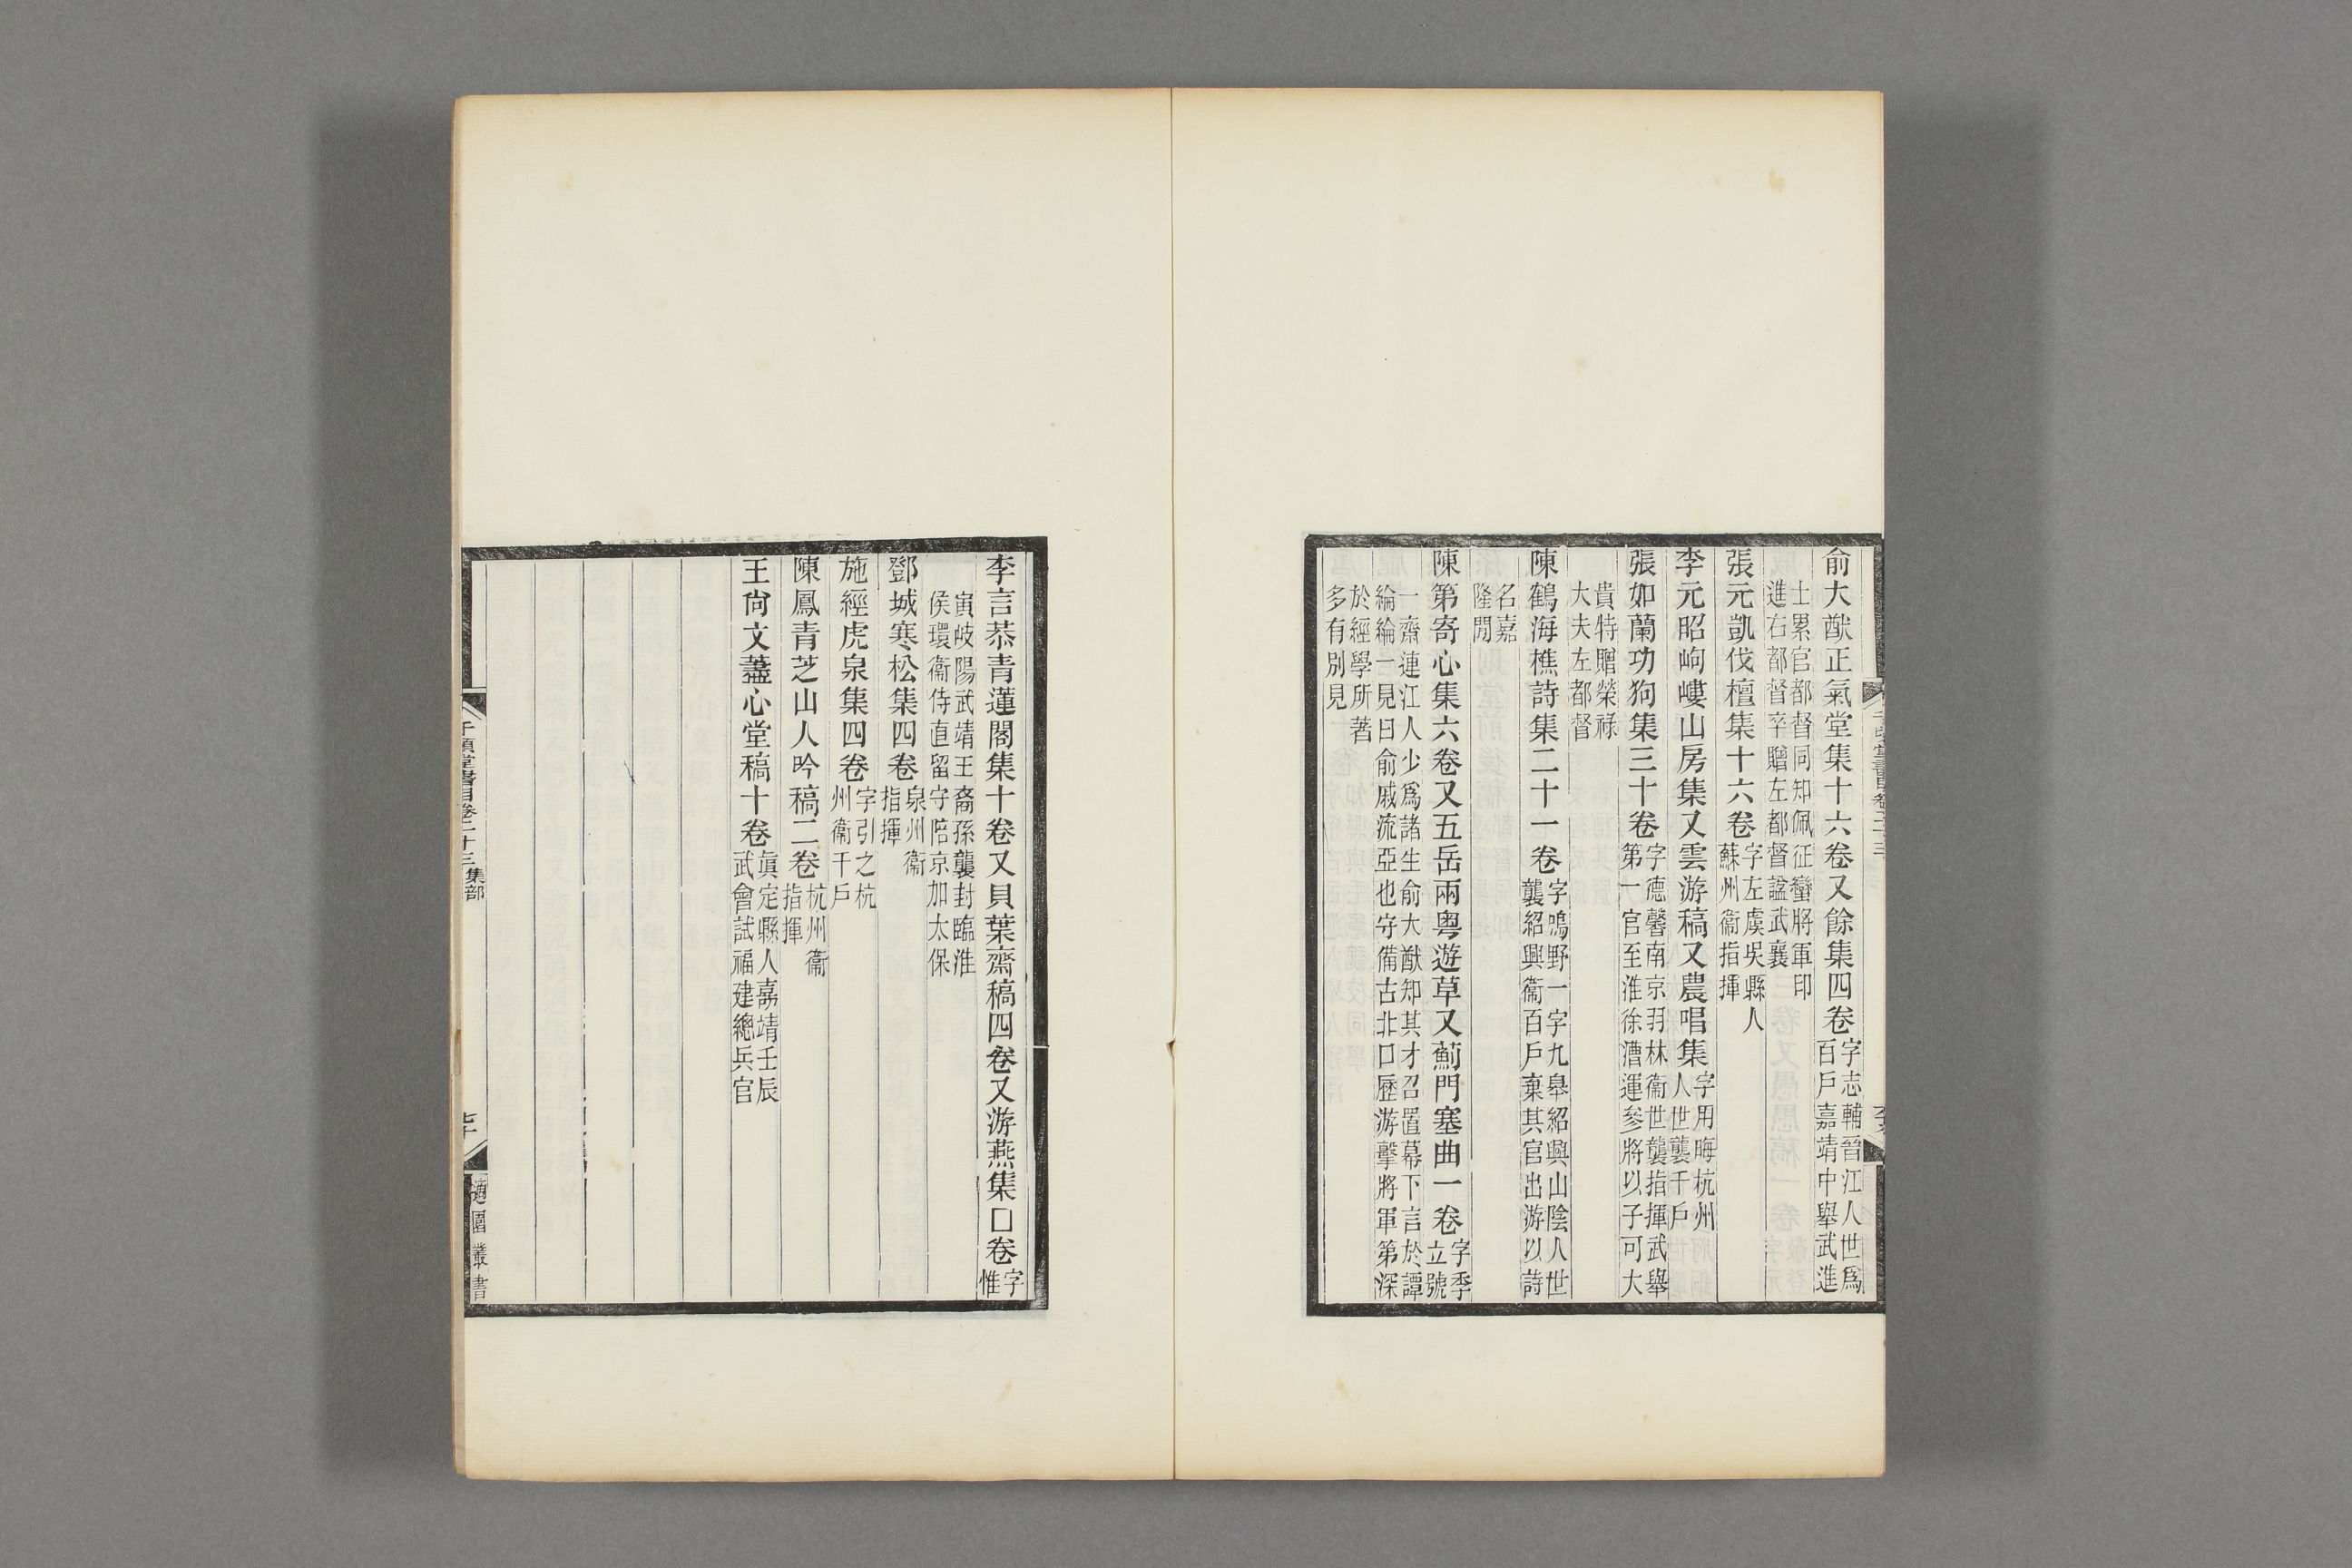 俞大猷正氣堂集十六卷又餘集四卷字志輔晉江人世爲百戶嘉靖中舉武進
士累官都督同知佩征蠻將軍印進右都督卒贈左都督諡武襄
張元凱伐檀集十六卷字左虞吳縣人蘇州衞指揮
李元昭岣嶁山房集又雲游稿又農唱集字用晦杭州人世襲千戶
張如蘭功狗集三十卷字德馨南京羽林衞世襲指揮武舉第一官至淮徐漕運參將以子可大
貴特贈榮祿大夫左都督
陳鶴海樵詩集二十一卷字鳴野一字九皋紹興山陰人世襲紹興衞百戶棄其官出游以詩
名嘉隆閒
陳第寄心集六卷又五岳兩粤遊草又薊門塞曲一卷字季立號
一齋連江人少爲諸生俞大猷知其才召置幕下言於譚綸綸一見曰俞戚流亞也守備古北口歷游擊將軍第深
於經學所著多有別見
李言恭青蓮閣集十卷又貝葉齋稿四卷又游燕集□卷字惟
寅岐陽武靖王裔孫襲封臨淮侯環衞侍直留守陪京加太保
鄧城寒松集四卷泉州衞指揮
施經虎泉集四卷字引之杭州衞千戶
陳鳳青芝山人吟稿二卷杭州衞指揮
王尙文藎心堂稿十卷眞定縣人嘉靖壬辰武會試福建總兵官
千頃堂書目卷二十三集部
七十
適園叢書